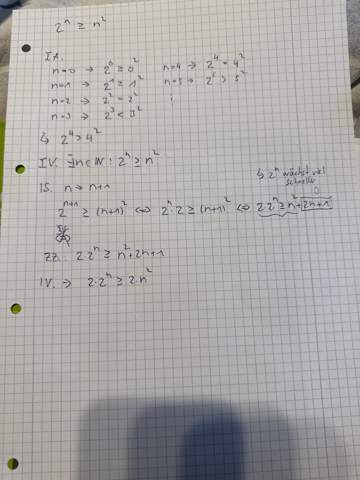 2ⁿ ≥ n²
I A.
n=0 → 2⁰ ≥ 0² n=4 → 2⁴ = 4²
n=1 → 2¹ ≥ 1² n=5 → 2⁵ > 5²
n=2 → 2² = 2² ⋮
n=3 → 2³ < 3²
↳ 2⁴ > 4²
IV. ∃n∈ℕ : 2ⁿ ≥ n²
↳ 2ⁿ wächst viel
schneller
IS. n → n+1
2ⁿ⁺¹ ≥ (n+1)² ⇔ 2ⁿ·2 ≥ (n+1)² ⇔ 2·2ⁿ ≥ n²+2n+1
ZZ. 2·2ⁿ ≥ n²+2n+1
IV. ⇒ 2·2ⁿ ≥ 2·n²